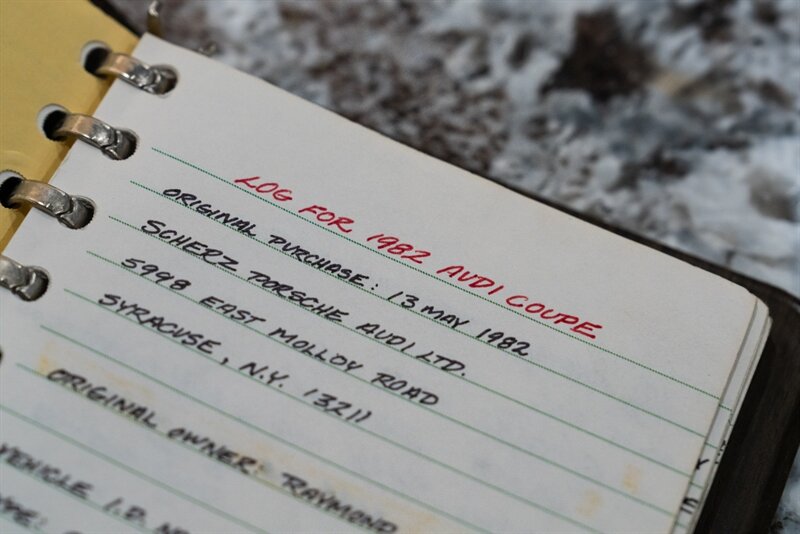 LOG FOR 1982 AUDI COUPE
ORIGINAL PURCHASE: 13 MAY 1982
SCHERZ PORSCHE AUDI LTD.
5998 EAST MOLLOY ROAD
SYRACUSE, N.Y. 13211
ORIGINAL OWNER: RAYMOND
VEHICLE I.D.